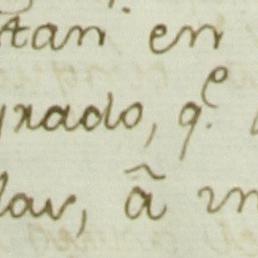 tan en
grado, q.e
lar, ã